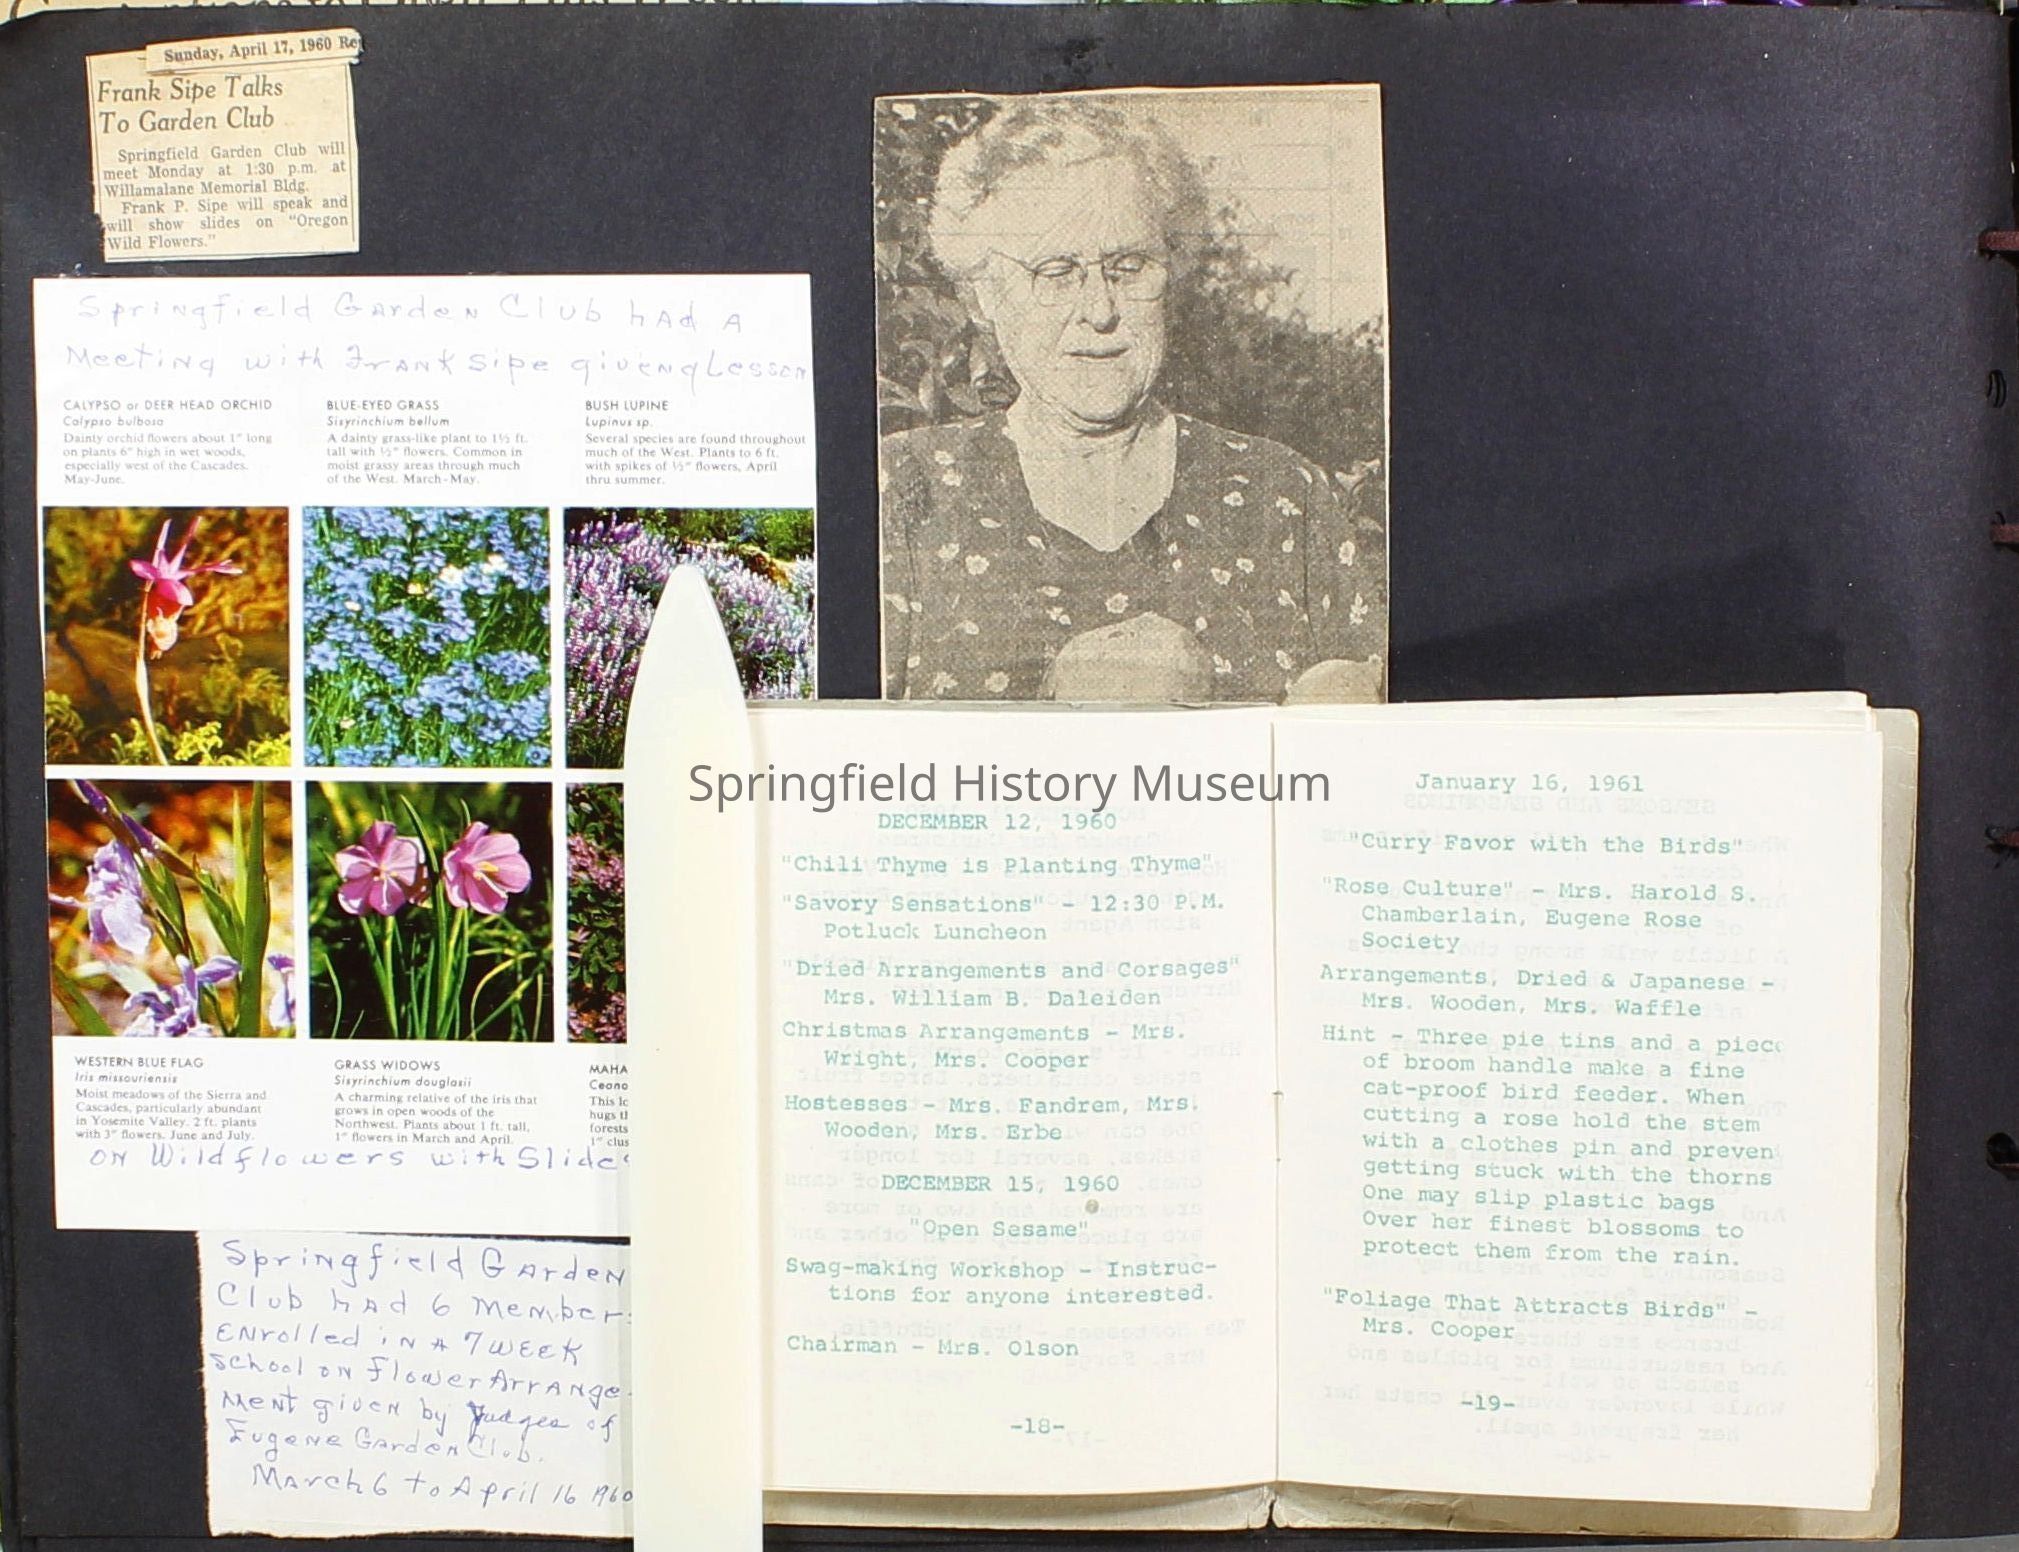 Sunday, April 17, 1960 Re
Frank Sipe Talks
To Garden Club
Springfield Garden Club will
meet Monday at 1:30 p.m. at
Willamalane Memorial Bldg.
Frank P. Sipe will speak and
will show slides on "Oregon
Wild Flowers."
Springfield Garden Club had a
Meeting with Frank Sipe giveng Lesson
CALYPSO or DEER HEAD ORCHID
Calypso bulbosa
Dainty orchid flowers about 1" long
on plants 6" high in wet woods,
especially west of the Cascades.
May-June.
BLUE-EYED GRASS
Sisyrinchium bellum
A dainty grass-like plant to 1½ ft.
tall with ½" flowers. Common in
moist grassy areas through much
of the West. March-May.
BUSH LUPINE
Lupinus sp.
Several species are found throughout
much of the West. Plants to 6 ft.
with spikes of ½" flowers, April
thru summer.
WESTERN BLUE FLAG
Iris missouriensis
Moist meadows of the Sierra and
Cascades, particularly abundant
in Yosemite Valley. 2 ft. plants
with 3" flowers. June and July.
GRASS WIDOWS
Sisyrinchium douglasii
A charming relative of the iris that
grows in open woods of the
Northwest. Plants about 1 ft. tall,
1" flowers in March and April.
MAHA
Ceano
This lo
hugs t
forests
1" clus
on Wildflowers with Slide
Springfield Garden
Club had 6 Member
Enrolled in a 7 week
School on Flower Arrange-
ment given by Judges of
Eugene Garden Club.
March 6 to April 16 1960
Springfield History Museum
DECEMBER 12, 1960
"Chili Thyme is Planting Thyme"
"Savory Sensations" - 12:30 P.M.
Potluck Luncheon
"Dried Arrangements and Corsages"
Mrs. William B. Daleiden
Christmas Arrangements - Mrs.
Wright, Mrs. Cooper
Hostesses - Mrs. Fandrem, Mrs.
Wooden, Mrs. Erbe
DECEMBER 15, 1960
"Open Sesame"
Swag-making Workshop - Instruc-
tions for anyone interested.
Chairman - Mrs. Olson
-18-
January 16, 1961
"Curry Favor with the Birds"
"Rose Culture" - Mrs. Harold S.
Chamberlain, Eugene Rose
Society
Arrangements, Dried & Japanese -
Mrs. Wooden, Mrs. Waffle
Hint - Three pie tins and a piece
of broom handle make a fine
cat-proof bird feeder. When
cutting a rose hold the stem
with a clothes pin and preven
getting stuck with the thorns
One may slip plastic bags
Over her finest blossoms to
protect them from the rain.
"Foliage That Attracts Birds" -
Mrs. Cooper
-19-